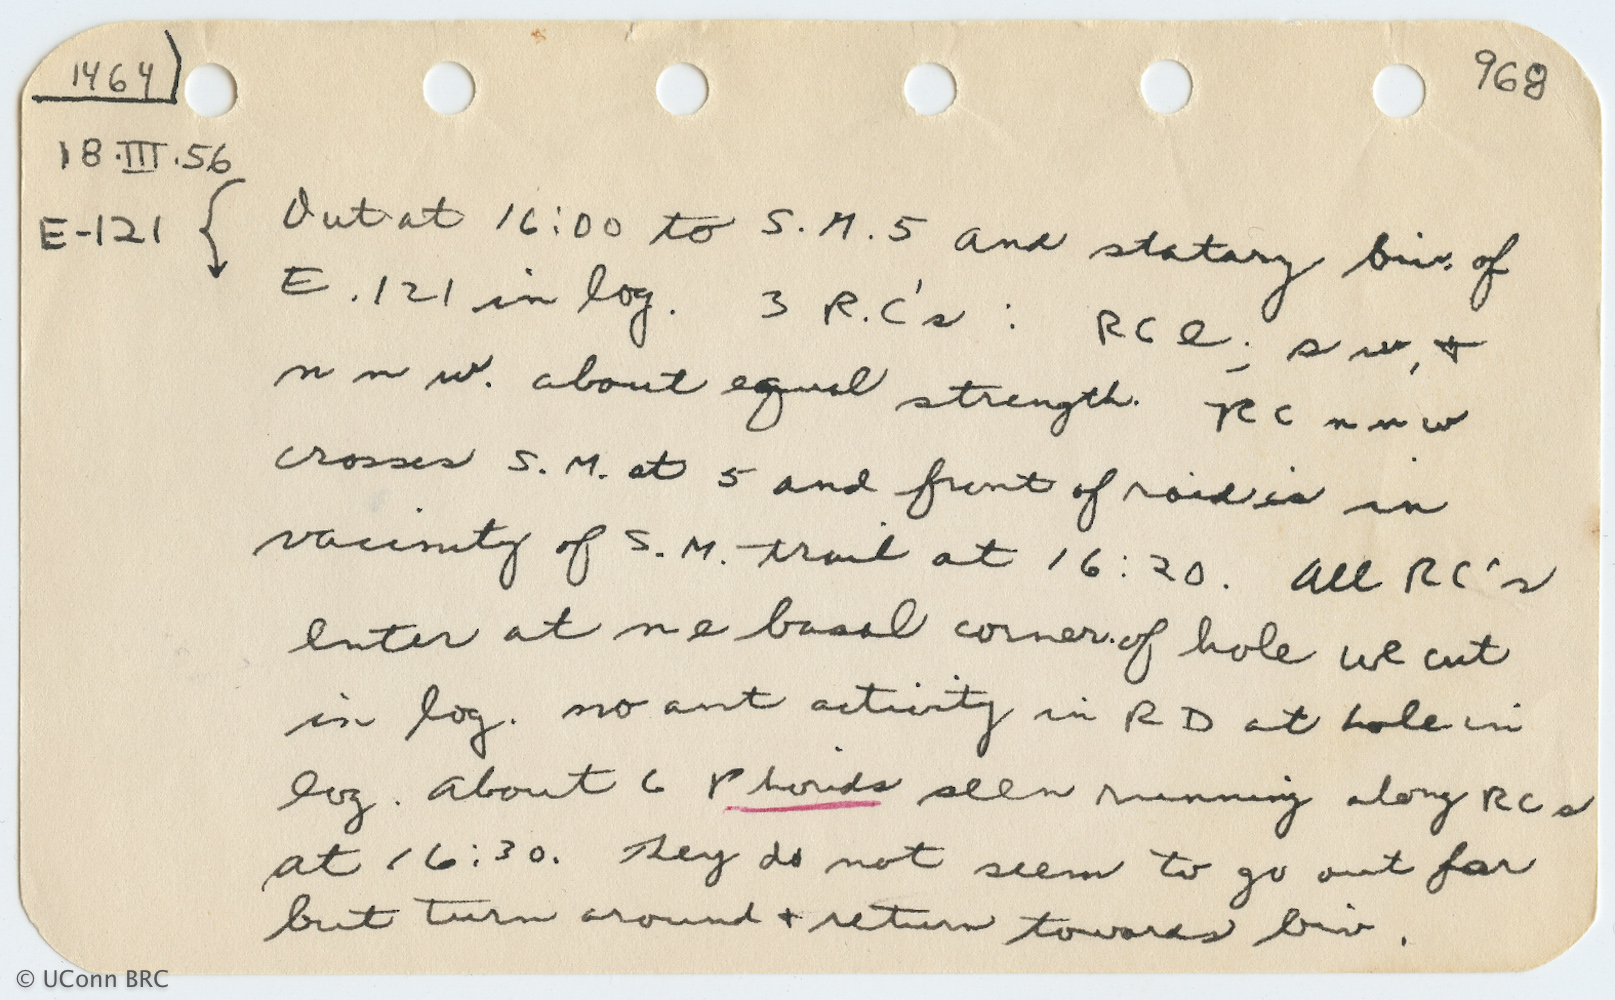 1464
968
18.III.56
E-121
Out at 16:00 to S.M.5 and statary biv. of
E.121 in log. 3 R.C's : RC e; sw, +
nnw. about equal strength. RC nnw
crosses S.M. at 5 and front of raid is in
vacinity of S.M. trail at 16:20. All RC's
enter at ne basal corner of hole we cut
in log. no ant activity in RD at hole in
log. About 6 Phorids seen running along RCs
at 16:30. They do not seem to go out far
but turn around + return towards biv.
© UConn BRC